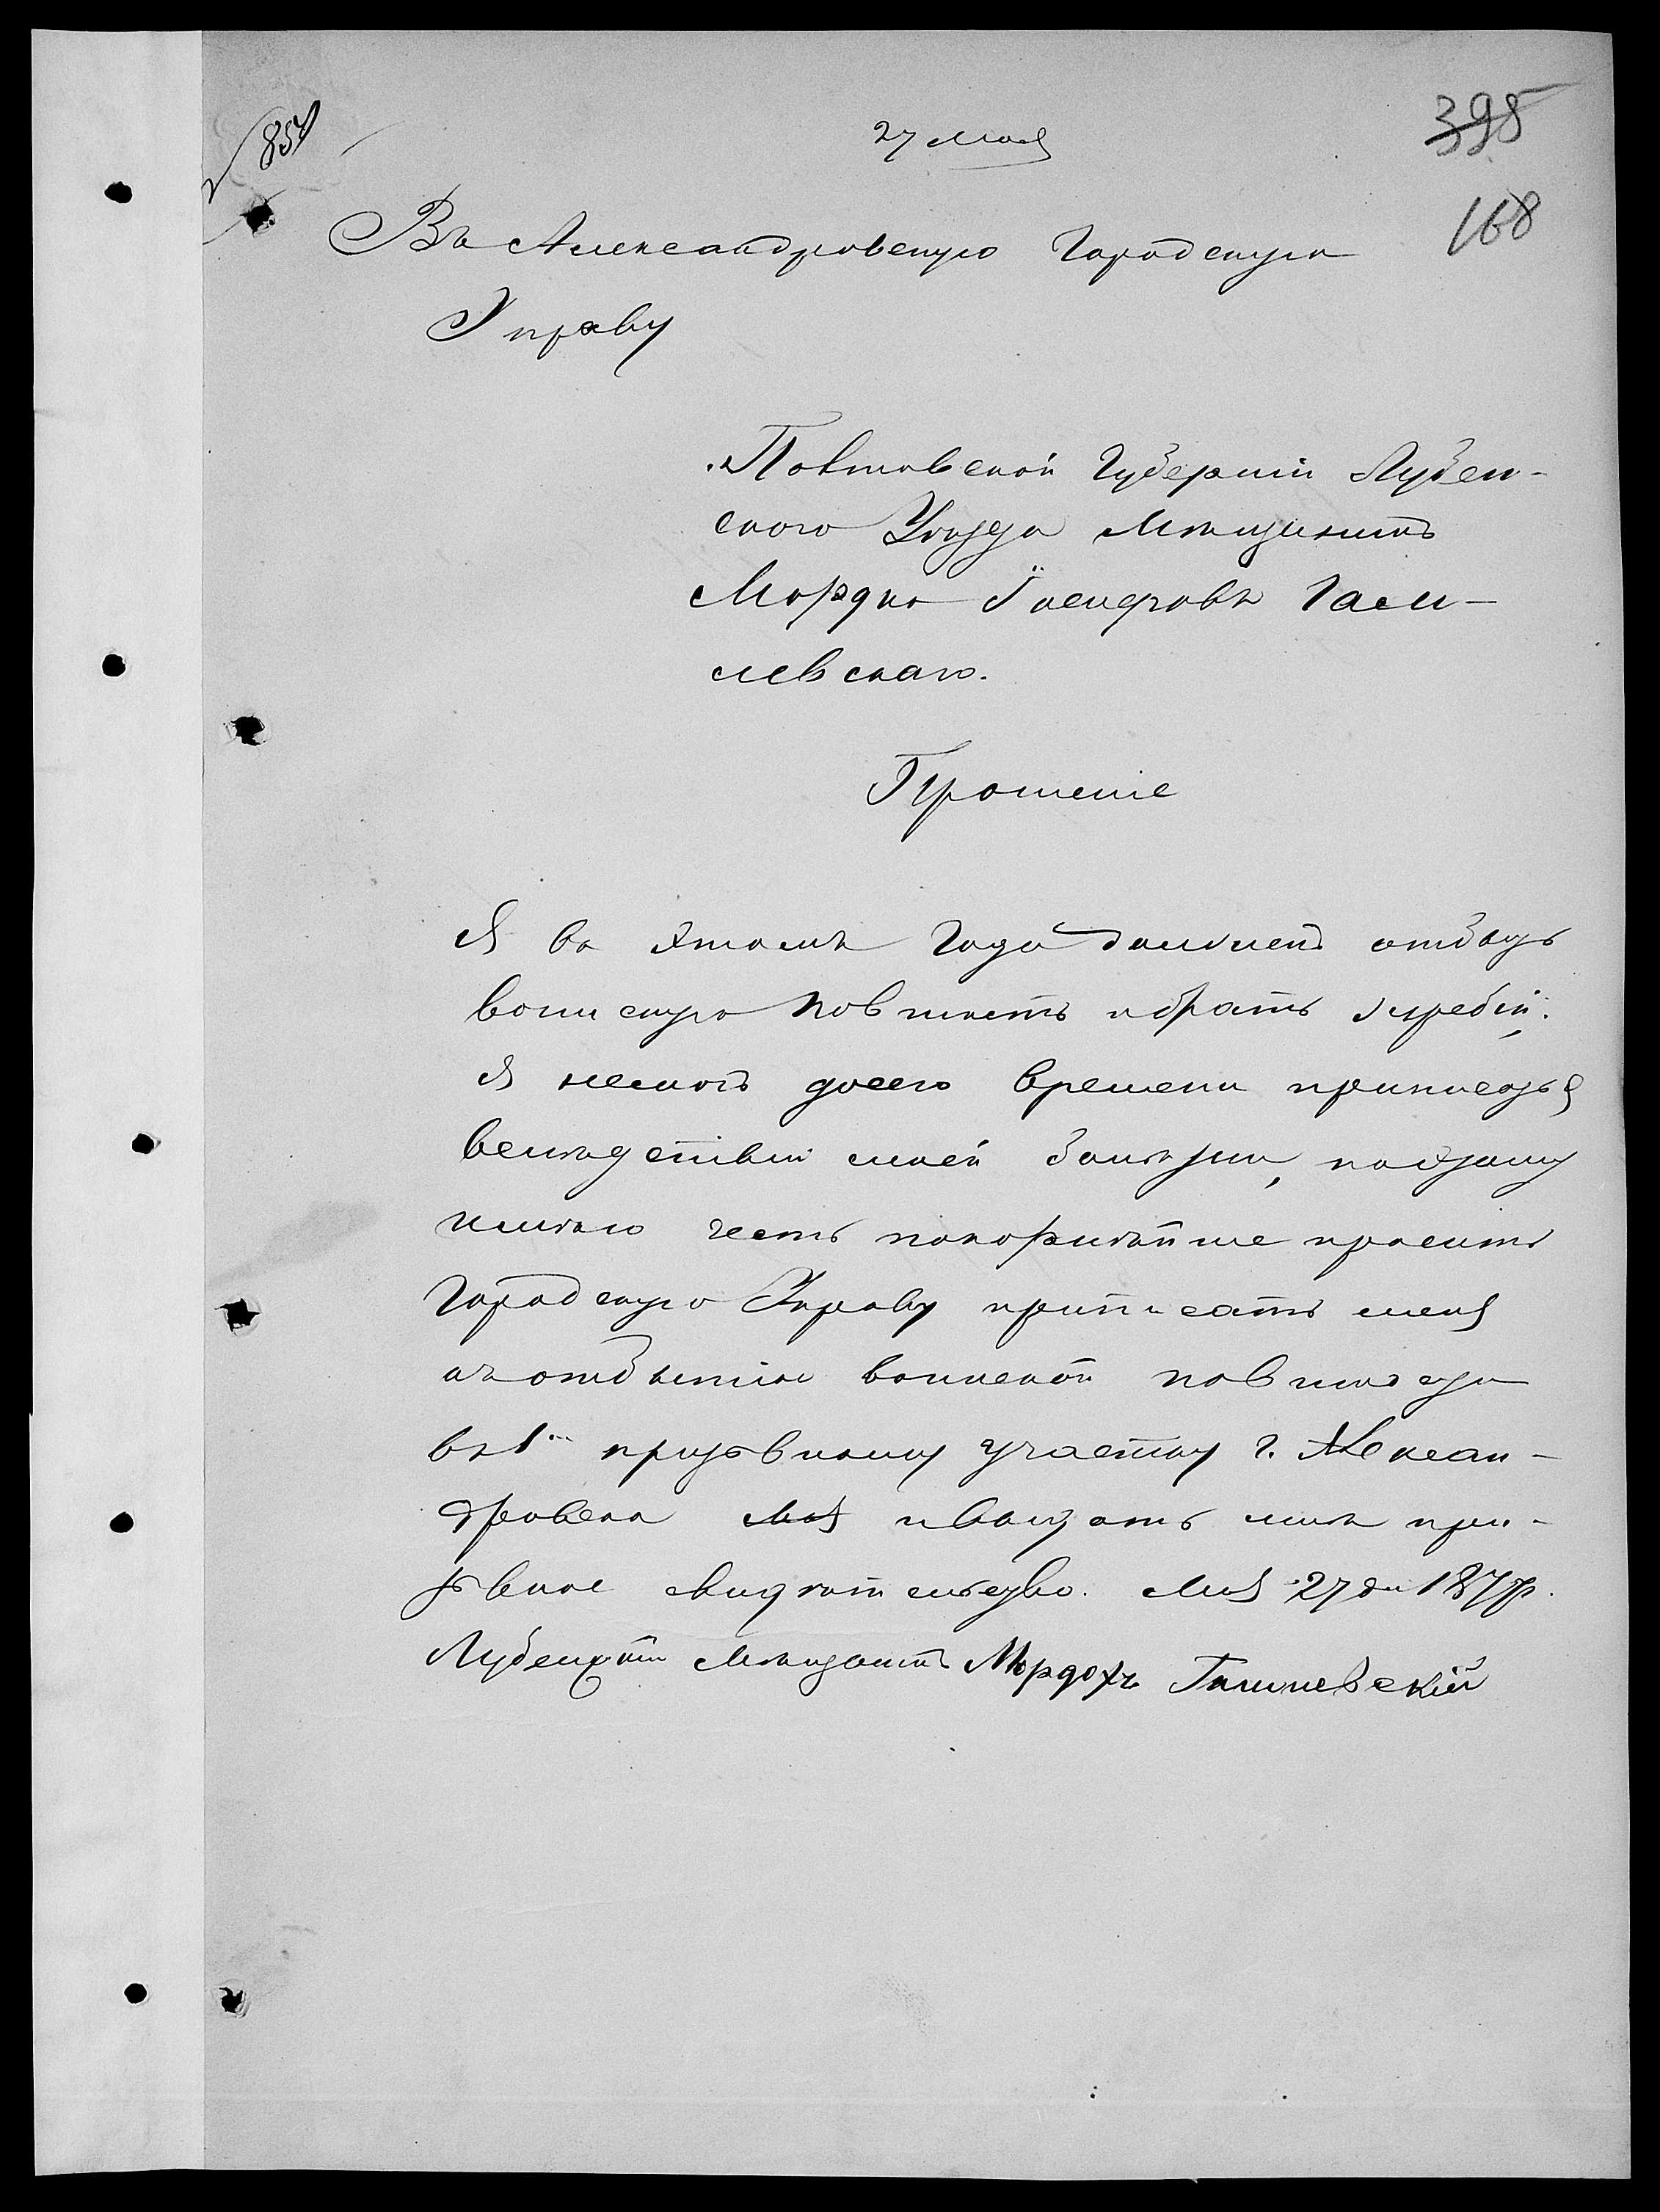 854
27 Мая
398
168
Въ Александровскую Городскую
Управу
Полтовской Губерніи Лубен-
ского Уѣзда Мѣщининъ
Мордко
левскаго.
Прошеніе
Я въ Этомъ Годо должен отбыть
воинскую повиность и брать жребій.
Я немогъ досего времени приписатся
вслѣдствіи моей болѣзни, поэтому
имѣю честь покорнѣйше просить
Городскую Управу приписать меня
къ отбытію воинской повиности
въ 1 призывному участку г. Алексан-
дровска Мая и выдать мнѣ при-
зывное свидѣтельство. Мая 27 дн 1877 г.
Лубенскій Мѣщанинъ Мордохъ